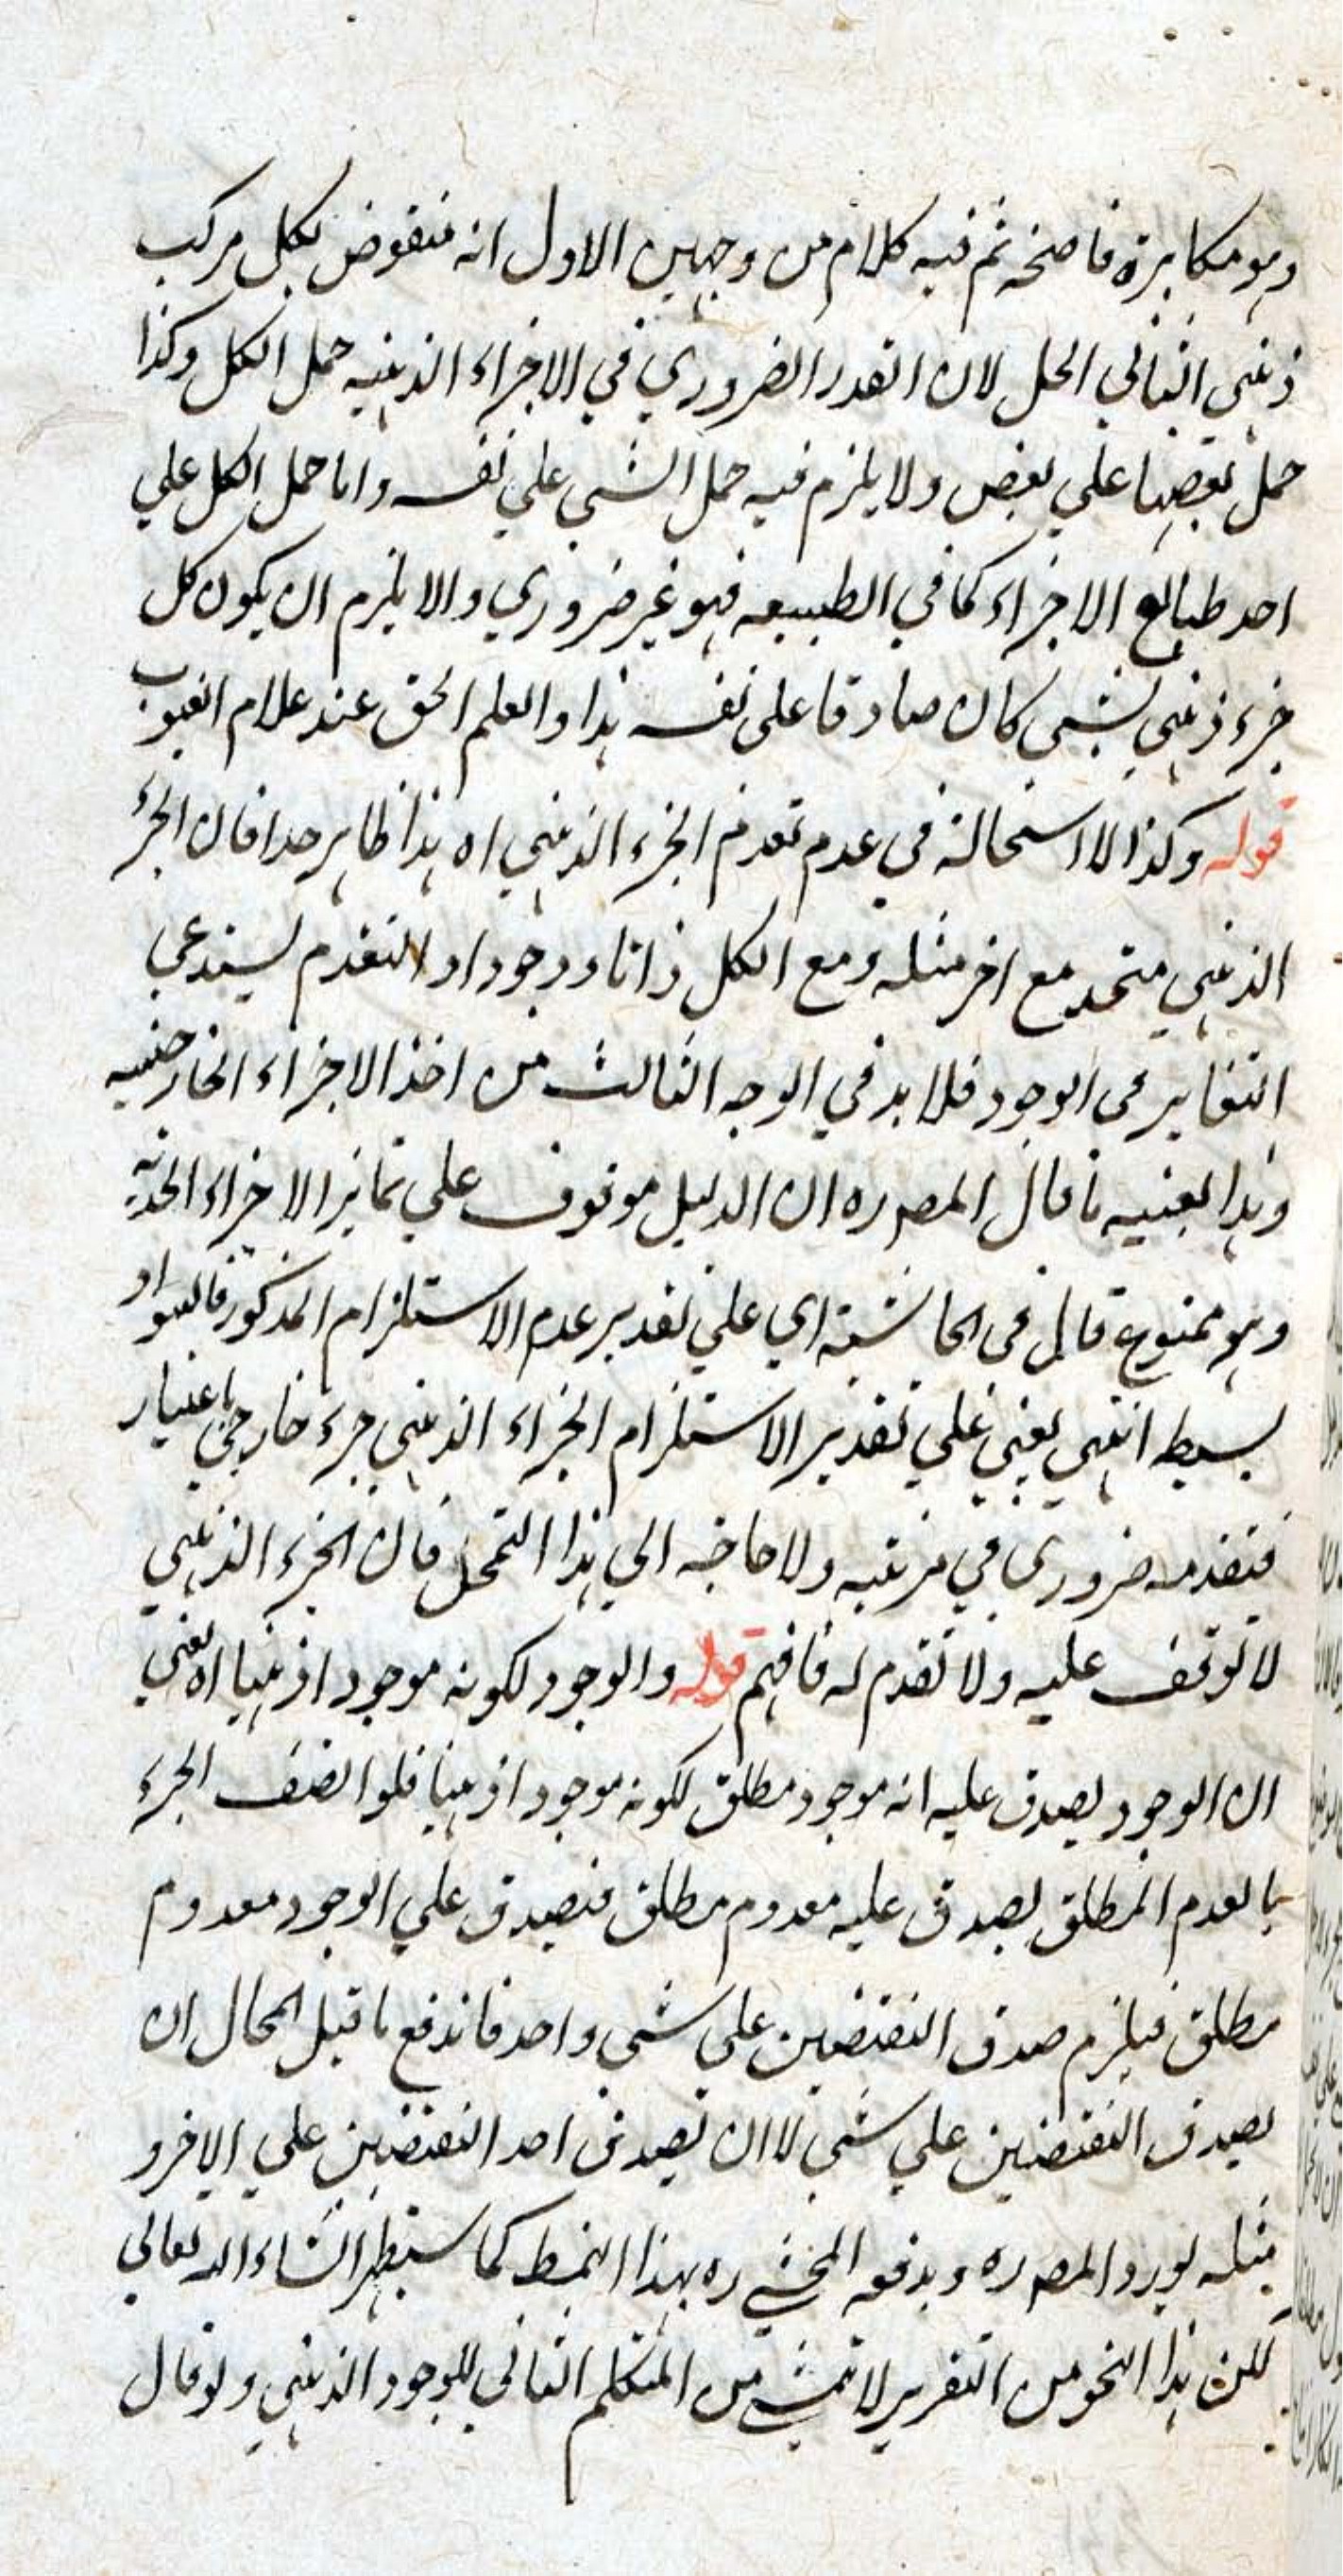 وهو مكابرة فاضحة ثم فيه كلام من وجهين الاول انه منقوض بكل مركب
ذهني الثاني الحل لان القدر الضروري في الاجزاء الذهنيه حمل الكل وكذا
حمل بعضها علي بعض ولا يلزم فيه حمل الشي علي نفسه واما حمل الكل علي
احد طبائع الاجزاء كما في الطبيعه فهو غير ضروري والا يلزم ان يكون كل
جزء ذهني لشي كان صادقا على نفسه هذا والعلم الحق عند علام الغيوب
قوله وكذا لا استحالة في عدم تقدم الجزء الذهني اه هذا ظاهر جدا فان الجزء
الذهني متحد مع اخر مثله ومع الكل ذاتا ووجودا والتقدم يستدعي
التغاير في الوجود فلا بد في الوجه الثالث من اخذ الاجزاء الخارجيه
وهذا بعينه ما قال المصره ان الدليل موقوف علي تمائز الاجزاء الحديه
وهو ممنوع قال في الحاشية اي علي تقدير عدم الاستلزام المذكور فالسواد
بسيط انتهي يعني علي تقدير الاستلزام الجزاء الذهني جزء خارجي باعتبار
فتقدمه ضروري في مرتبه ولا حاجه الي هذا التمحل فان الجزء الذهني
لا توقف عليه ولا تقدم له فافهم قوله والوجود لكونه موجودا ذهنيا اه يعني
ان الوجود يصدق عليه انه موجود مطلق لكونه موجودا ذهنيا فلو اتصف الجزء
بالعدم المطلق يصدق عليه معدوم مطلق فيصدق علي الوجود معدوم
مطلق فيلزم صدق النقيضين علي شي واحد فاندفع ما قيل المحال ان
يصدق النقيضين علي شي لا ان يصدق احد النقيضين علي الاخر و
مثله يورد المصره ويدفعه المحشي ره بهذا النمط كما سيظهر انشاء الله تعالي
لكن هذا النحو من التقرير لا تمشي من المتكلم النافي للوجود الذهني ولو قال